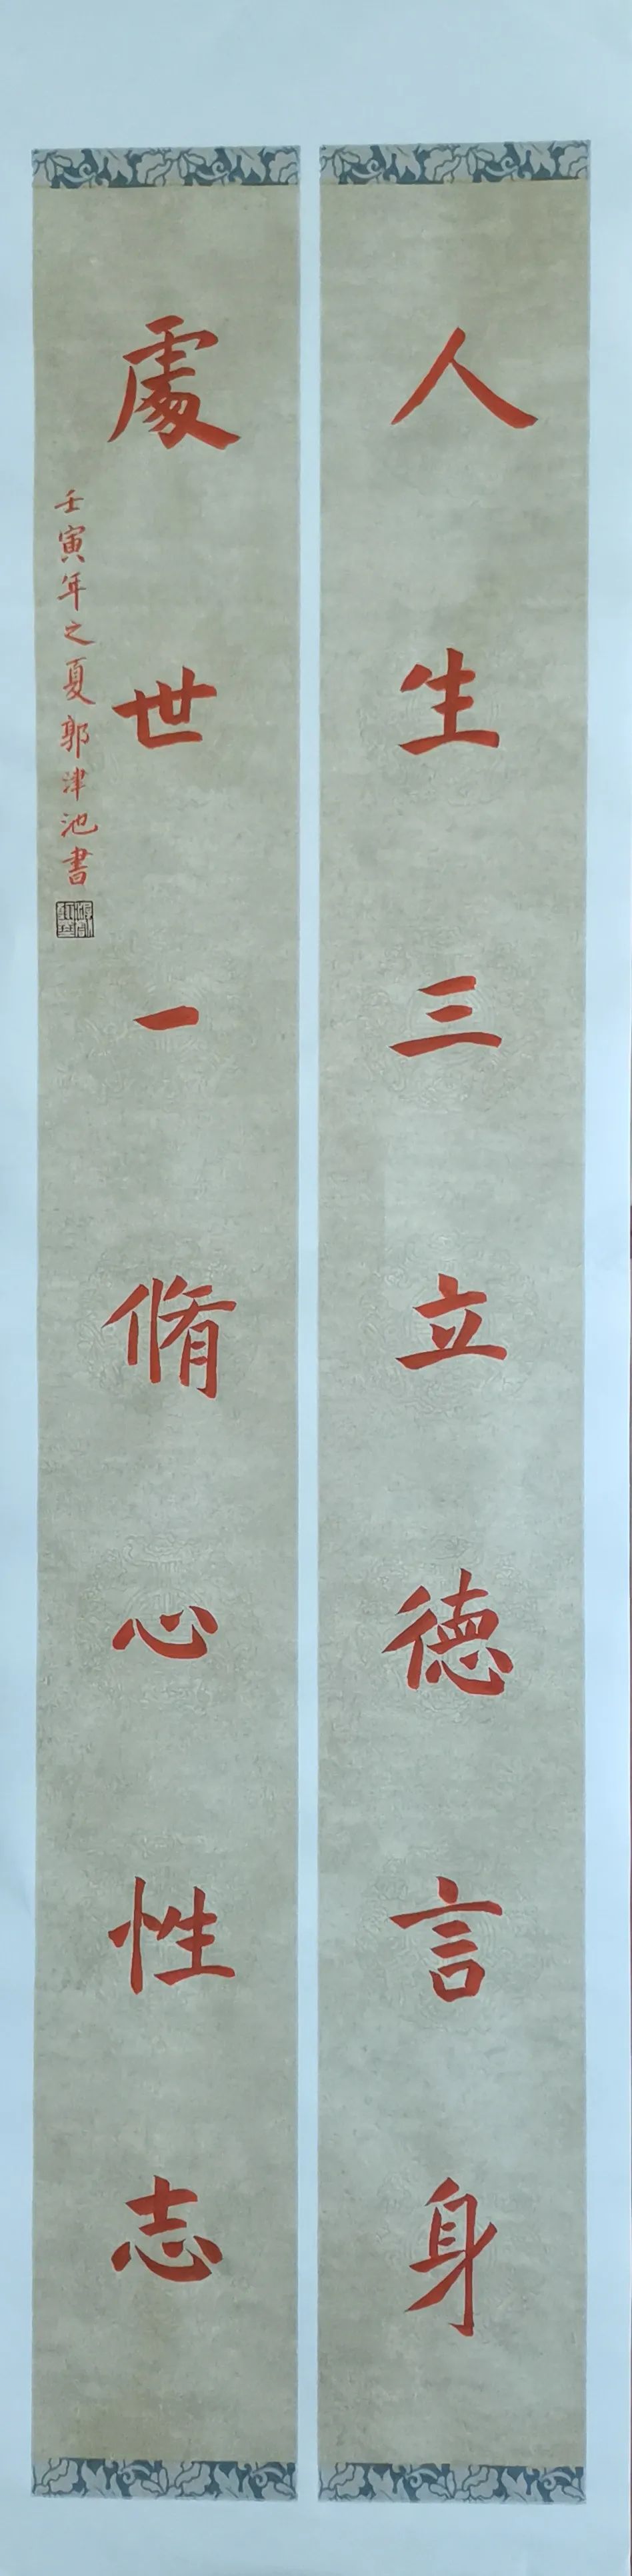 人生三立德言身
處世一脩心性志
壬寅年之夏郭津池書